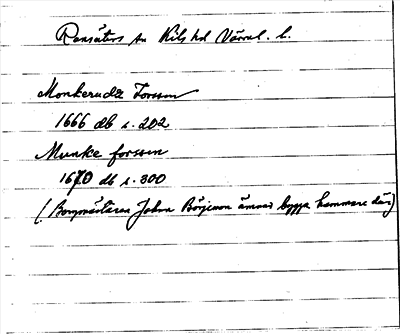 Ransäters sn Kils hd Värml. l.
Monkeruda Forssen
1666 db s. 202
Munke forssen
1670 db s. 300
(Borgmästaren Johan Börjesson ämnar bygga hammare där)